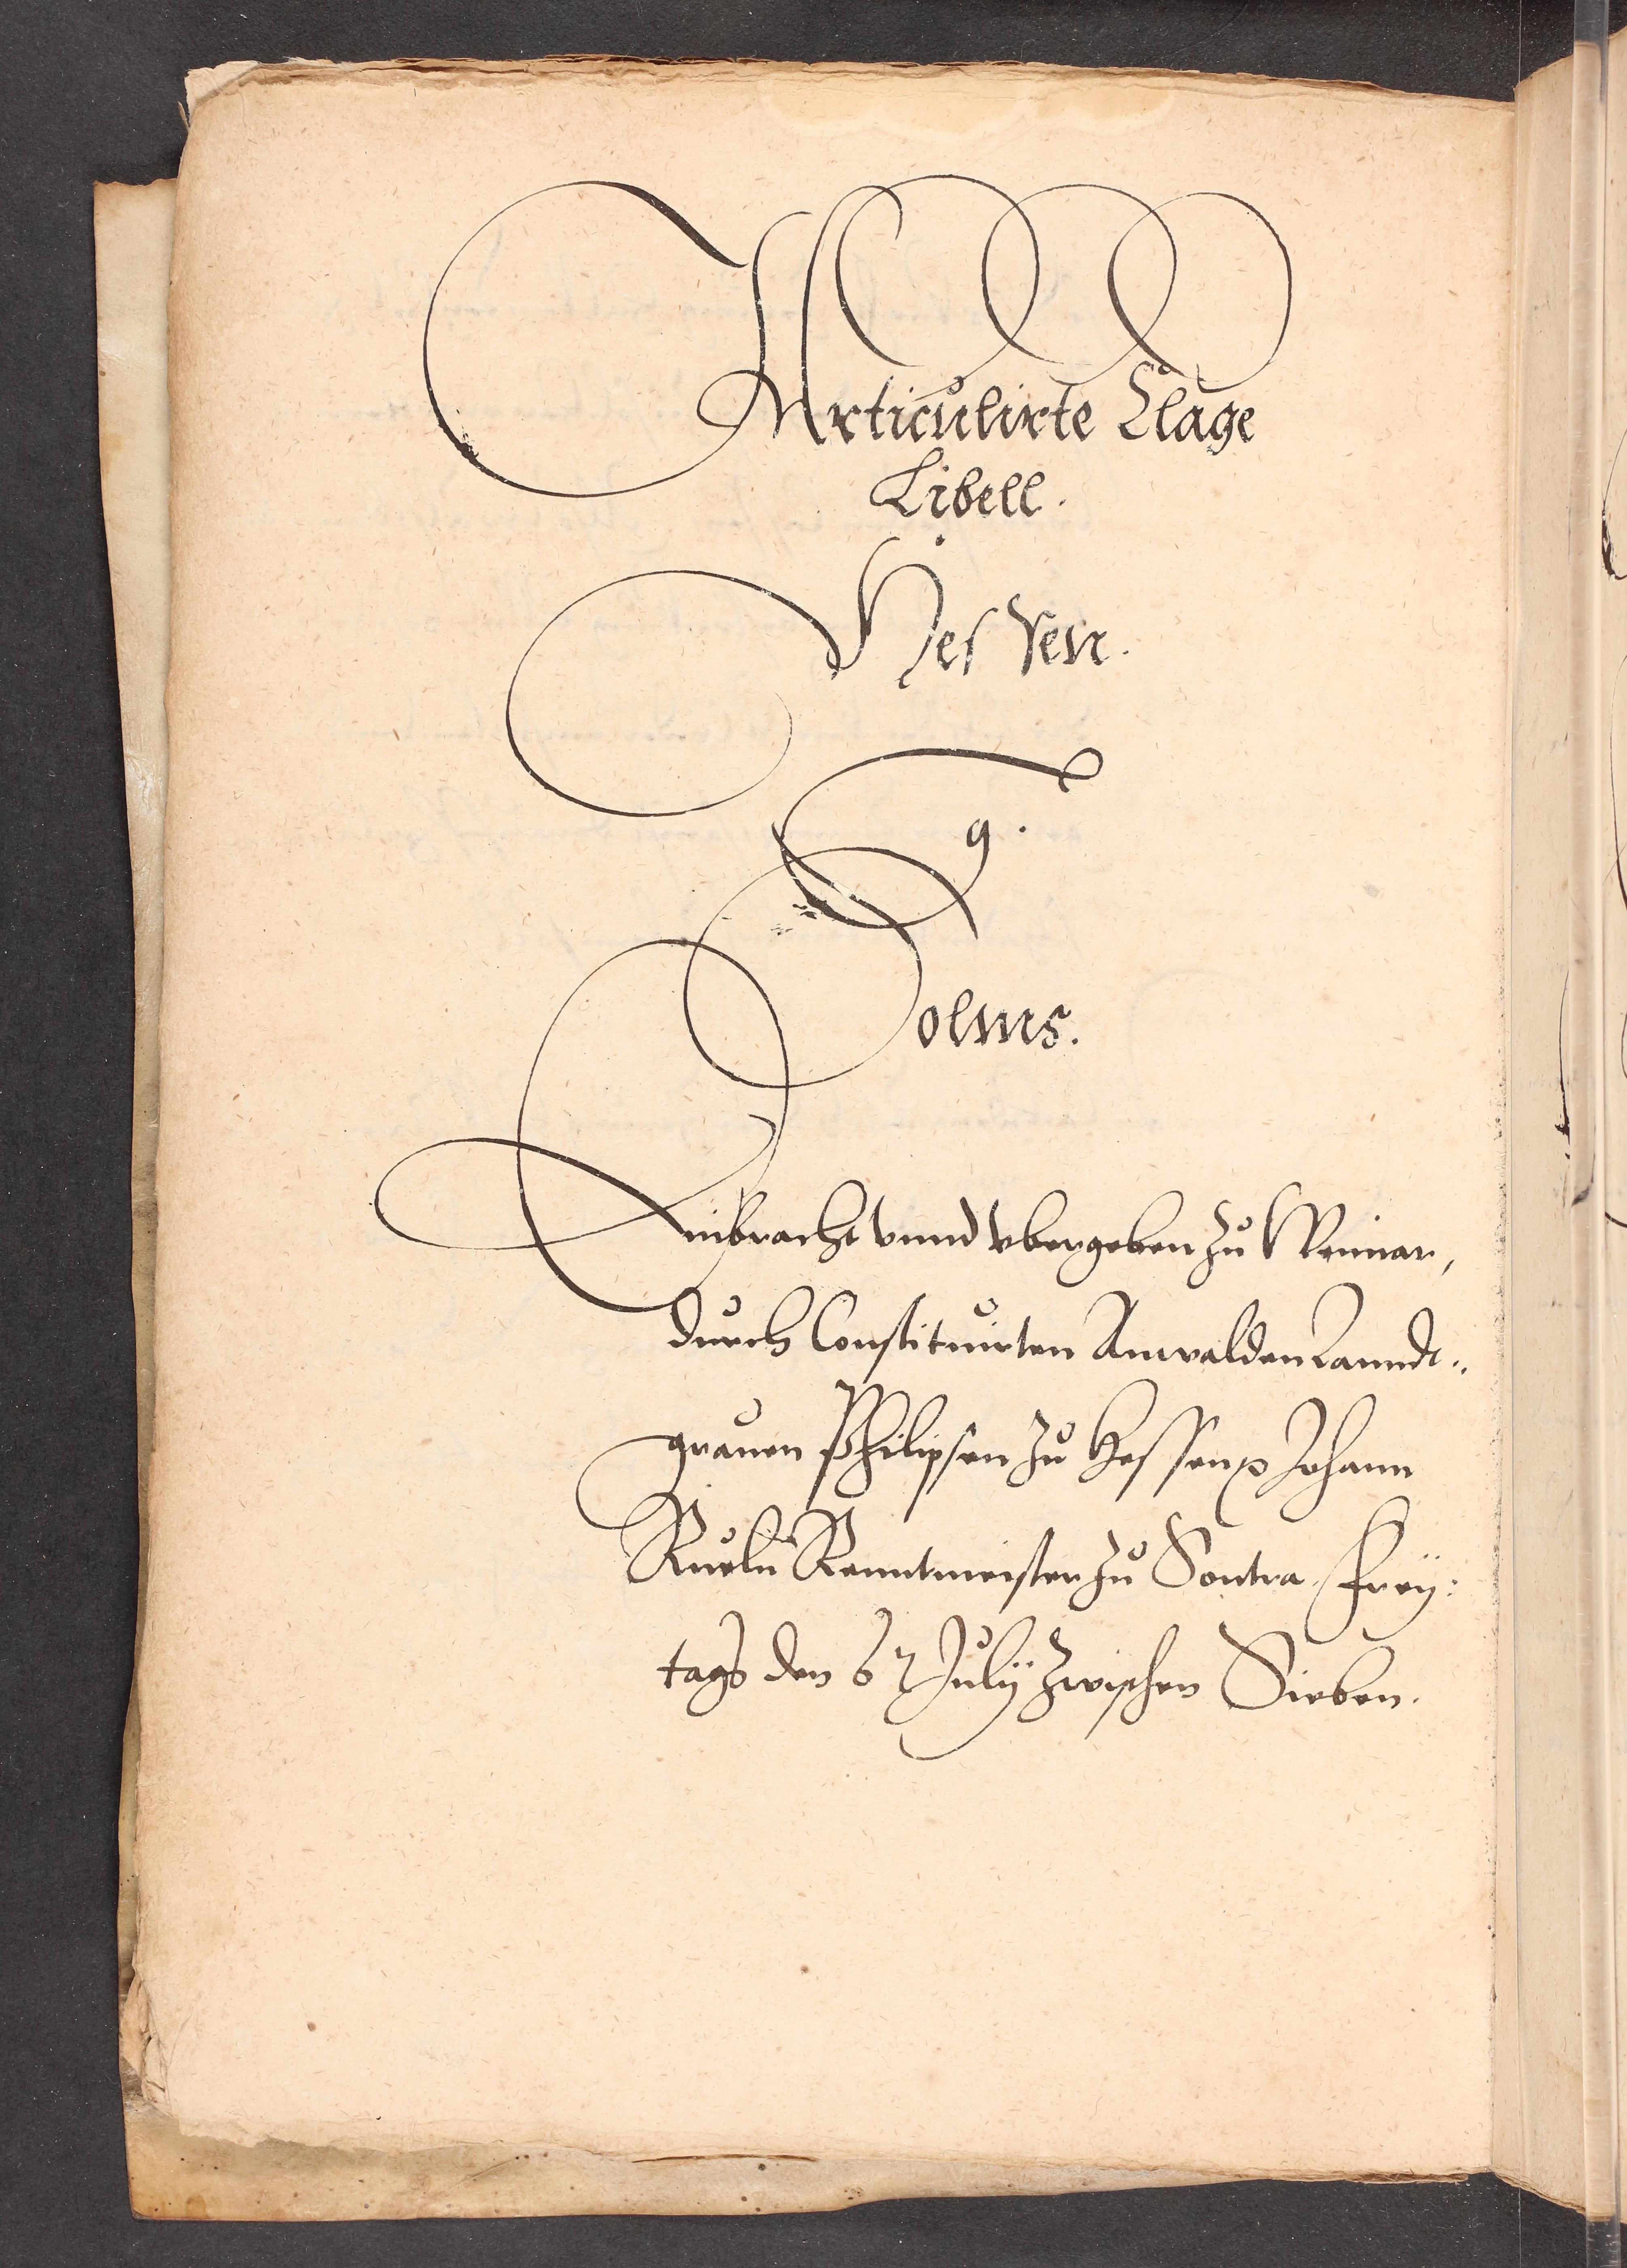 Articulirte Clage
Libell.
Hessen.
g.
Solms.
Einbracht vnnd vbergeben zu Weimar,
durch Constituirten Anwalden Lanndt-
grauen Philipsen zu Hessen Johann
Rueln Renntmeister zu Sontra, Frey:
tags den 6 July zwischen Sieben.